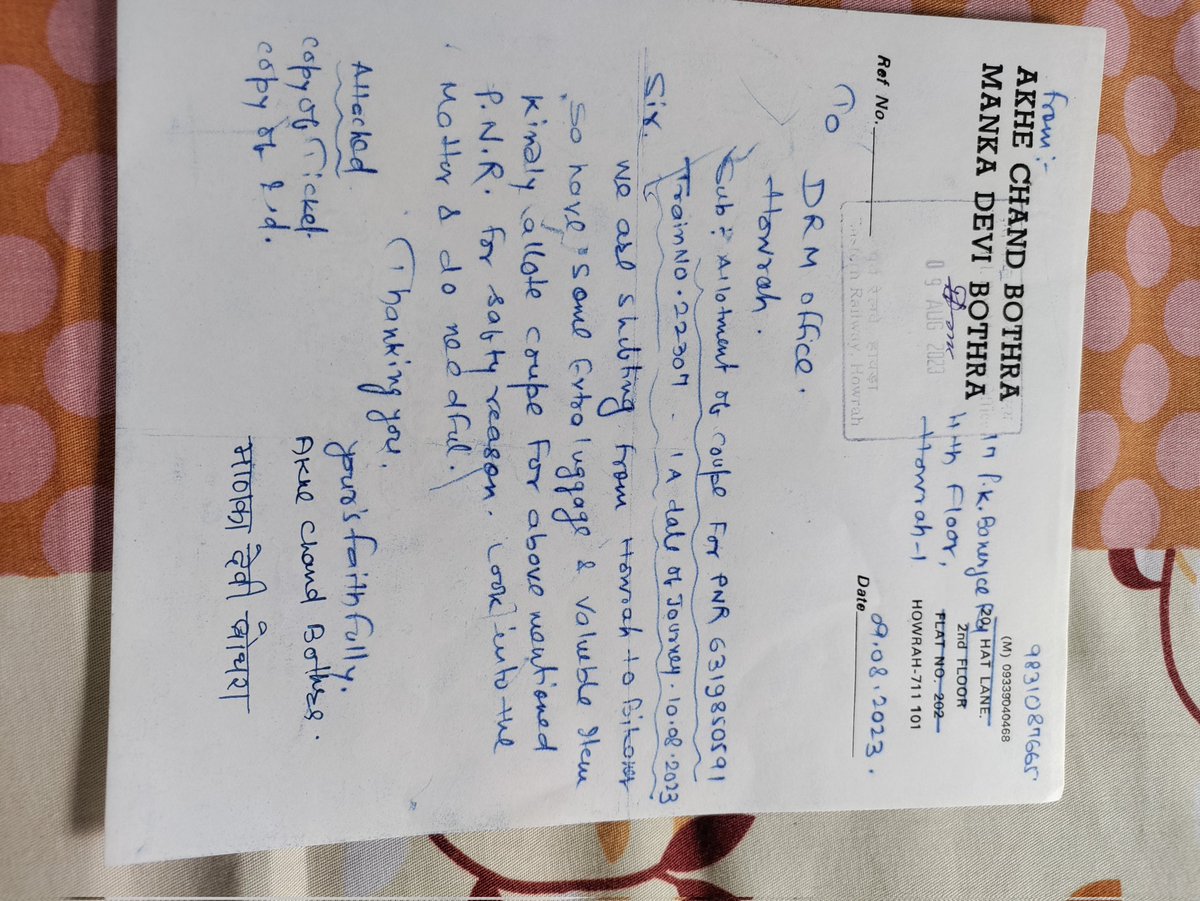 from:-
AKHE CHAND BOTHRA
MANKA DEVI BOTHRA
9831087665
(M) 09339040468
17 P.K. Banerjee Roy
20, HAT LANE.
4th Floor,
2nd FLOOR
FLAT NO. 202
Howrah-1
HOWRAH-711 101
09 AUG 2023
पूर्व रेलवे हावड़ा
Eastern Railway, Howrah
Ref No.
Date 09.08.2023.
To
DRM office.
Howrah.
Sub:- Allotment of coupe For PNR 6319850591
Train No. 22307. 1A date of Journey. 10.08.2023
Sir.
We are shifting from Howrah to Bikaner
So have some Extra luggage & valueble Item
Kindly allote coupe For above mentioned
P.N.R. for safity reason. Look into the
Matter & do needful.
Thanking you.
Attached
copy of Ticket.
copy of Id.
your's faithfully.
Akhe Chand Bothra.
माणका देवी बोथरा